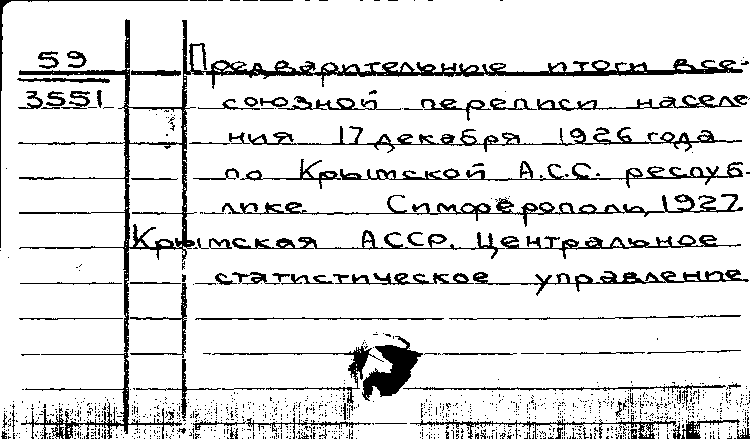 59
3551
Предварительные итоги все-
союзной переписи населе
ния 17 декабря 1926 года
по Крымской А.С.С. респуб-
лике. Симферополь, 1927.
Крымская АССР. Центральное
статистическое управление